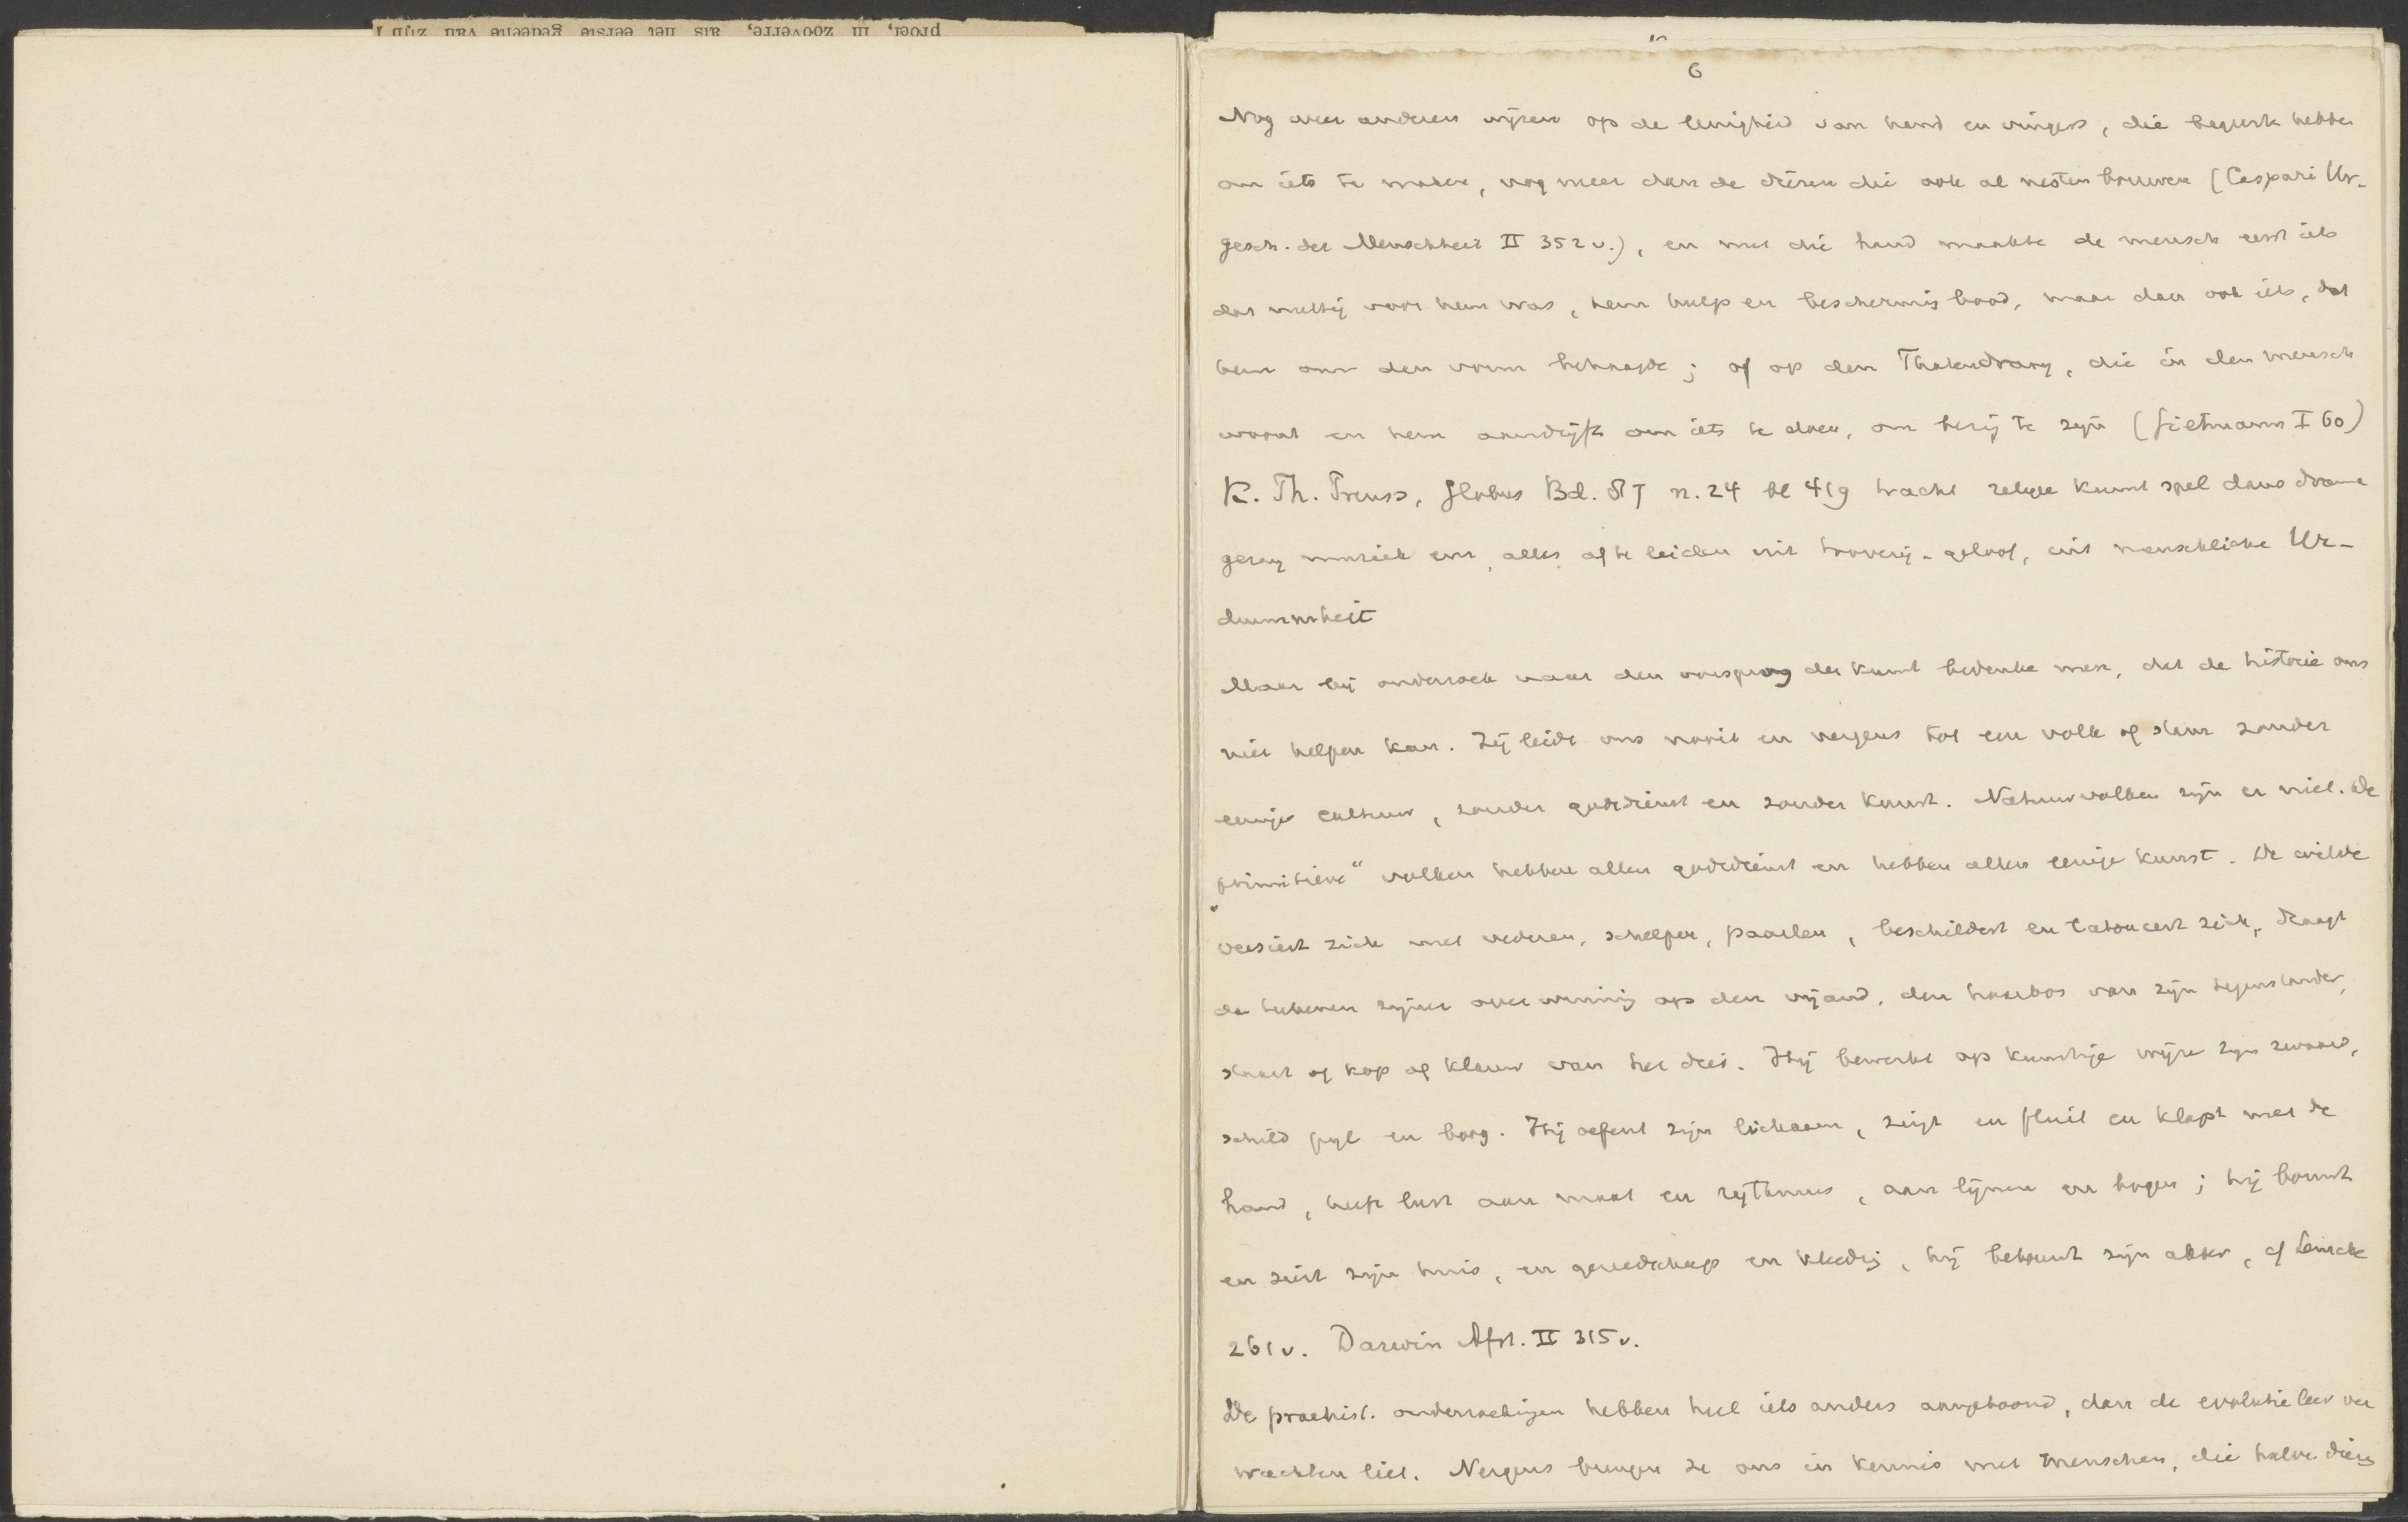 proef, in zooverre, als het eerste gedeelte van zijn
6
Nog weer anderen wijzen op de lenigheid van hand en vingers, die beperkt hebben
om iets te maken, nog meer dan de dieren die ook al nesten bouwen (Caspari Ur-
gesch. der Menschheit II 352 v.), en met die hand maakte de mensch eerst iets
dat nuttig voor hem was, hem hulp en bescherming bood, maar dan ook iets, dat
hem om den vorm behaagde; of op den Thatendrang, die in den mensch
woont en hem aandrijft om iets te doen, om bezig te zijn (Gietmann I 60)
K. Th. Preuss, Globus Bd. 87 n. 24 bl 419 tracht religie kunst spel dans drama
gezang muziek enz. alles af te leiden uit toverij-geloof, uit menschliche Ur-
dummheit
Maar bij onderzoek naar den oorsprong der kunst bedenke men, dat de historie ons
niet helpen kan. Zij leidt ons nooit en nergens tot een volk of stam zonder
eenige cultuur, zonder godsdienst en zonder kunst. Natuurvolken zijn er niet. De
"primitieve" volken hebben allen godsdienst en hebben allen eenige kunst. De wilde
versiert zich met vederen, schelpen, paarlen, beschildert en tatoueert zich, draagt
de teekenen zijner overwinning op den vijand, den haarbos van zijn tegenstander,
staart of kop of klauw van het dier. Hij bewerkt op kunstige wijze zijn zwaard,
schild pijl en boog. Hij oefent zijn lichaam, zingt en fluit en klapt met de
hand, heeft lust aan maat en rythmus, aan lijnen en bogen; hij bouwt
en siert zijn huis, en gereedschap en kleding, hij bebouwt zijn akker, cf Lemcke
261 v. Darwin Afst. II 315 v.
De praehist. onderzoekingen hebben heel iets anders aangetoond, dan de evolutieleer ver
wachten liet. Nergens brengen ze ons in kennis met menschen, die halve dieren